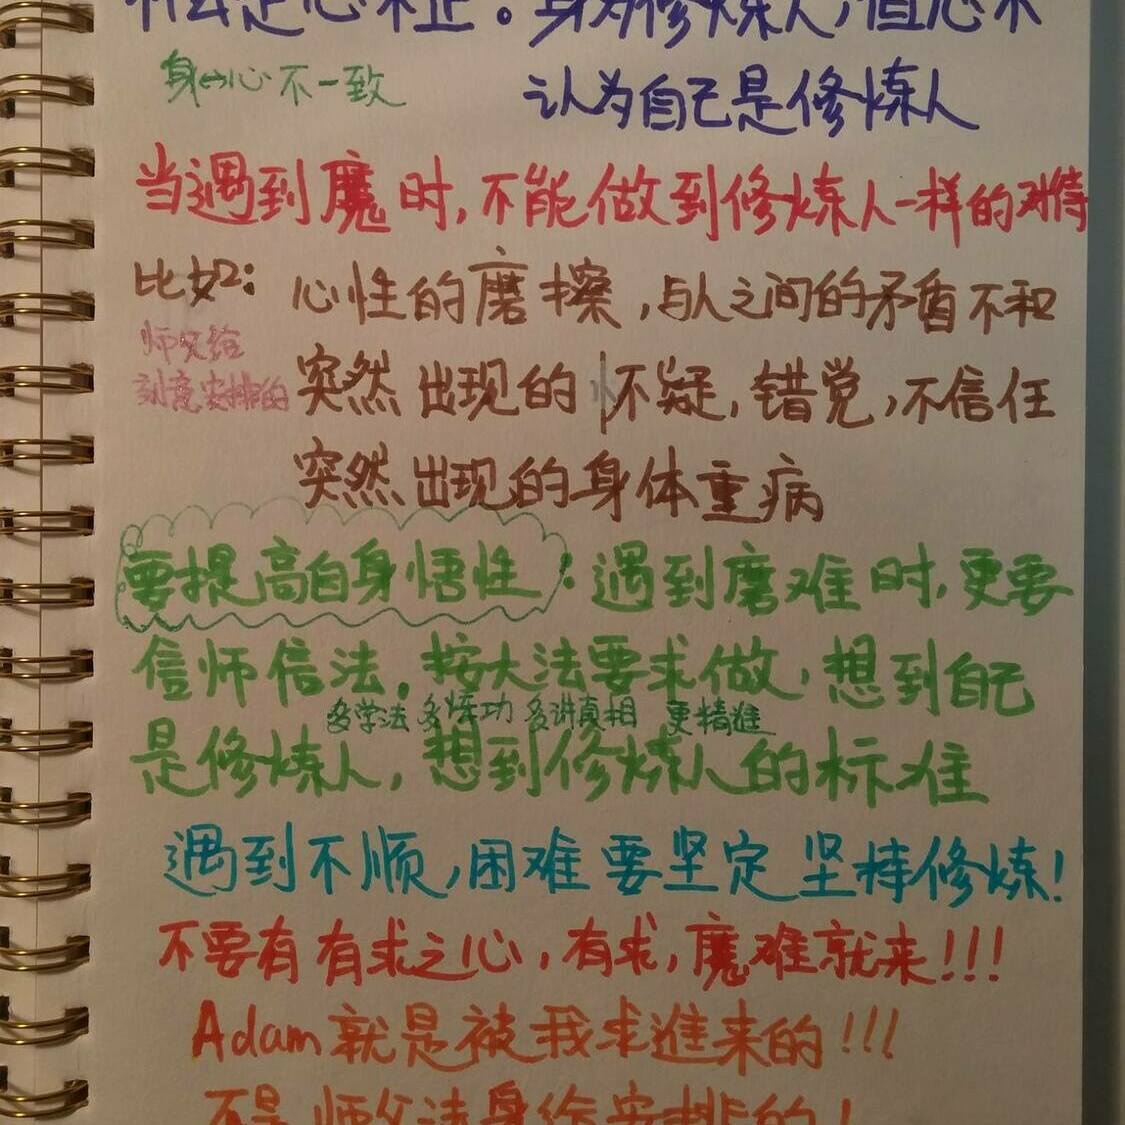 什么是心不正。身为修炼人，但心不
身心不一致
认为自己是修炼人
当遇到魔时，不能做到修炼人一样的对待
比如：心性的磨擦，与人之间的矛盾不和
师父给
刻意安排的
突然出现的 不疑，错觉，不信任
突然出现的身体重病
要提高自身悟性：遇到磨难时，更要
信师信法，按大法要求做，想到自己
多学法 多炼功 多讲真相 更精進
是修炼人，想到修炼人的标准
遇到不顺，困难要坚定坚持修炼！
不要有有求之心，有求，魔难就来!!!
Adam就是被我求進来的!!!
不是师父法身给安排的！